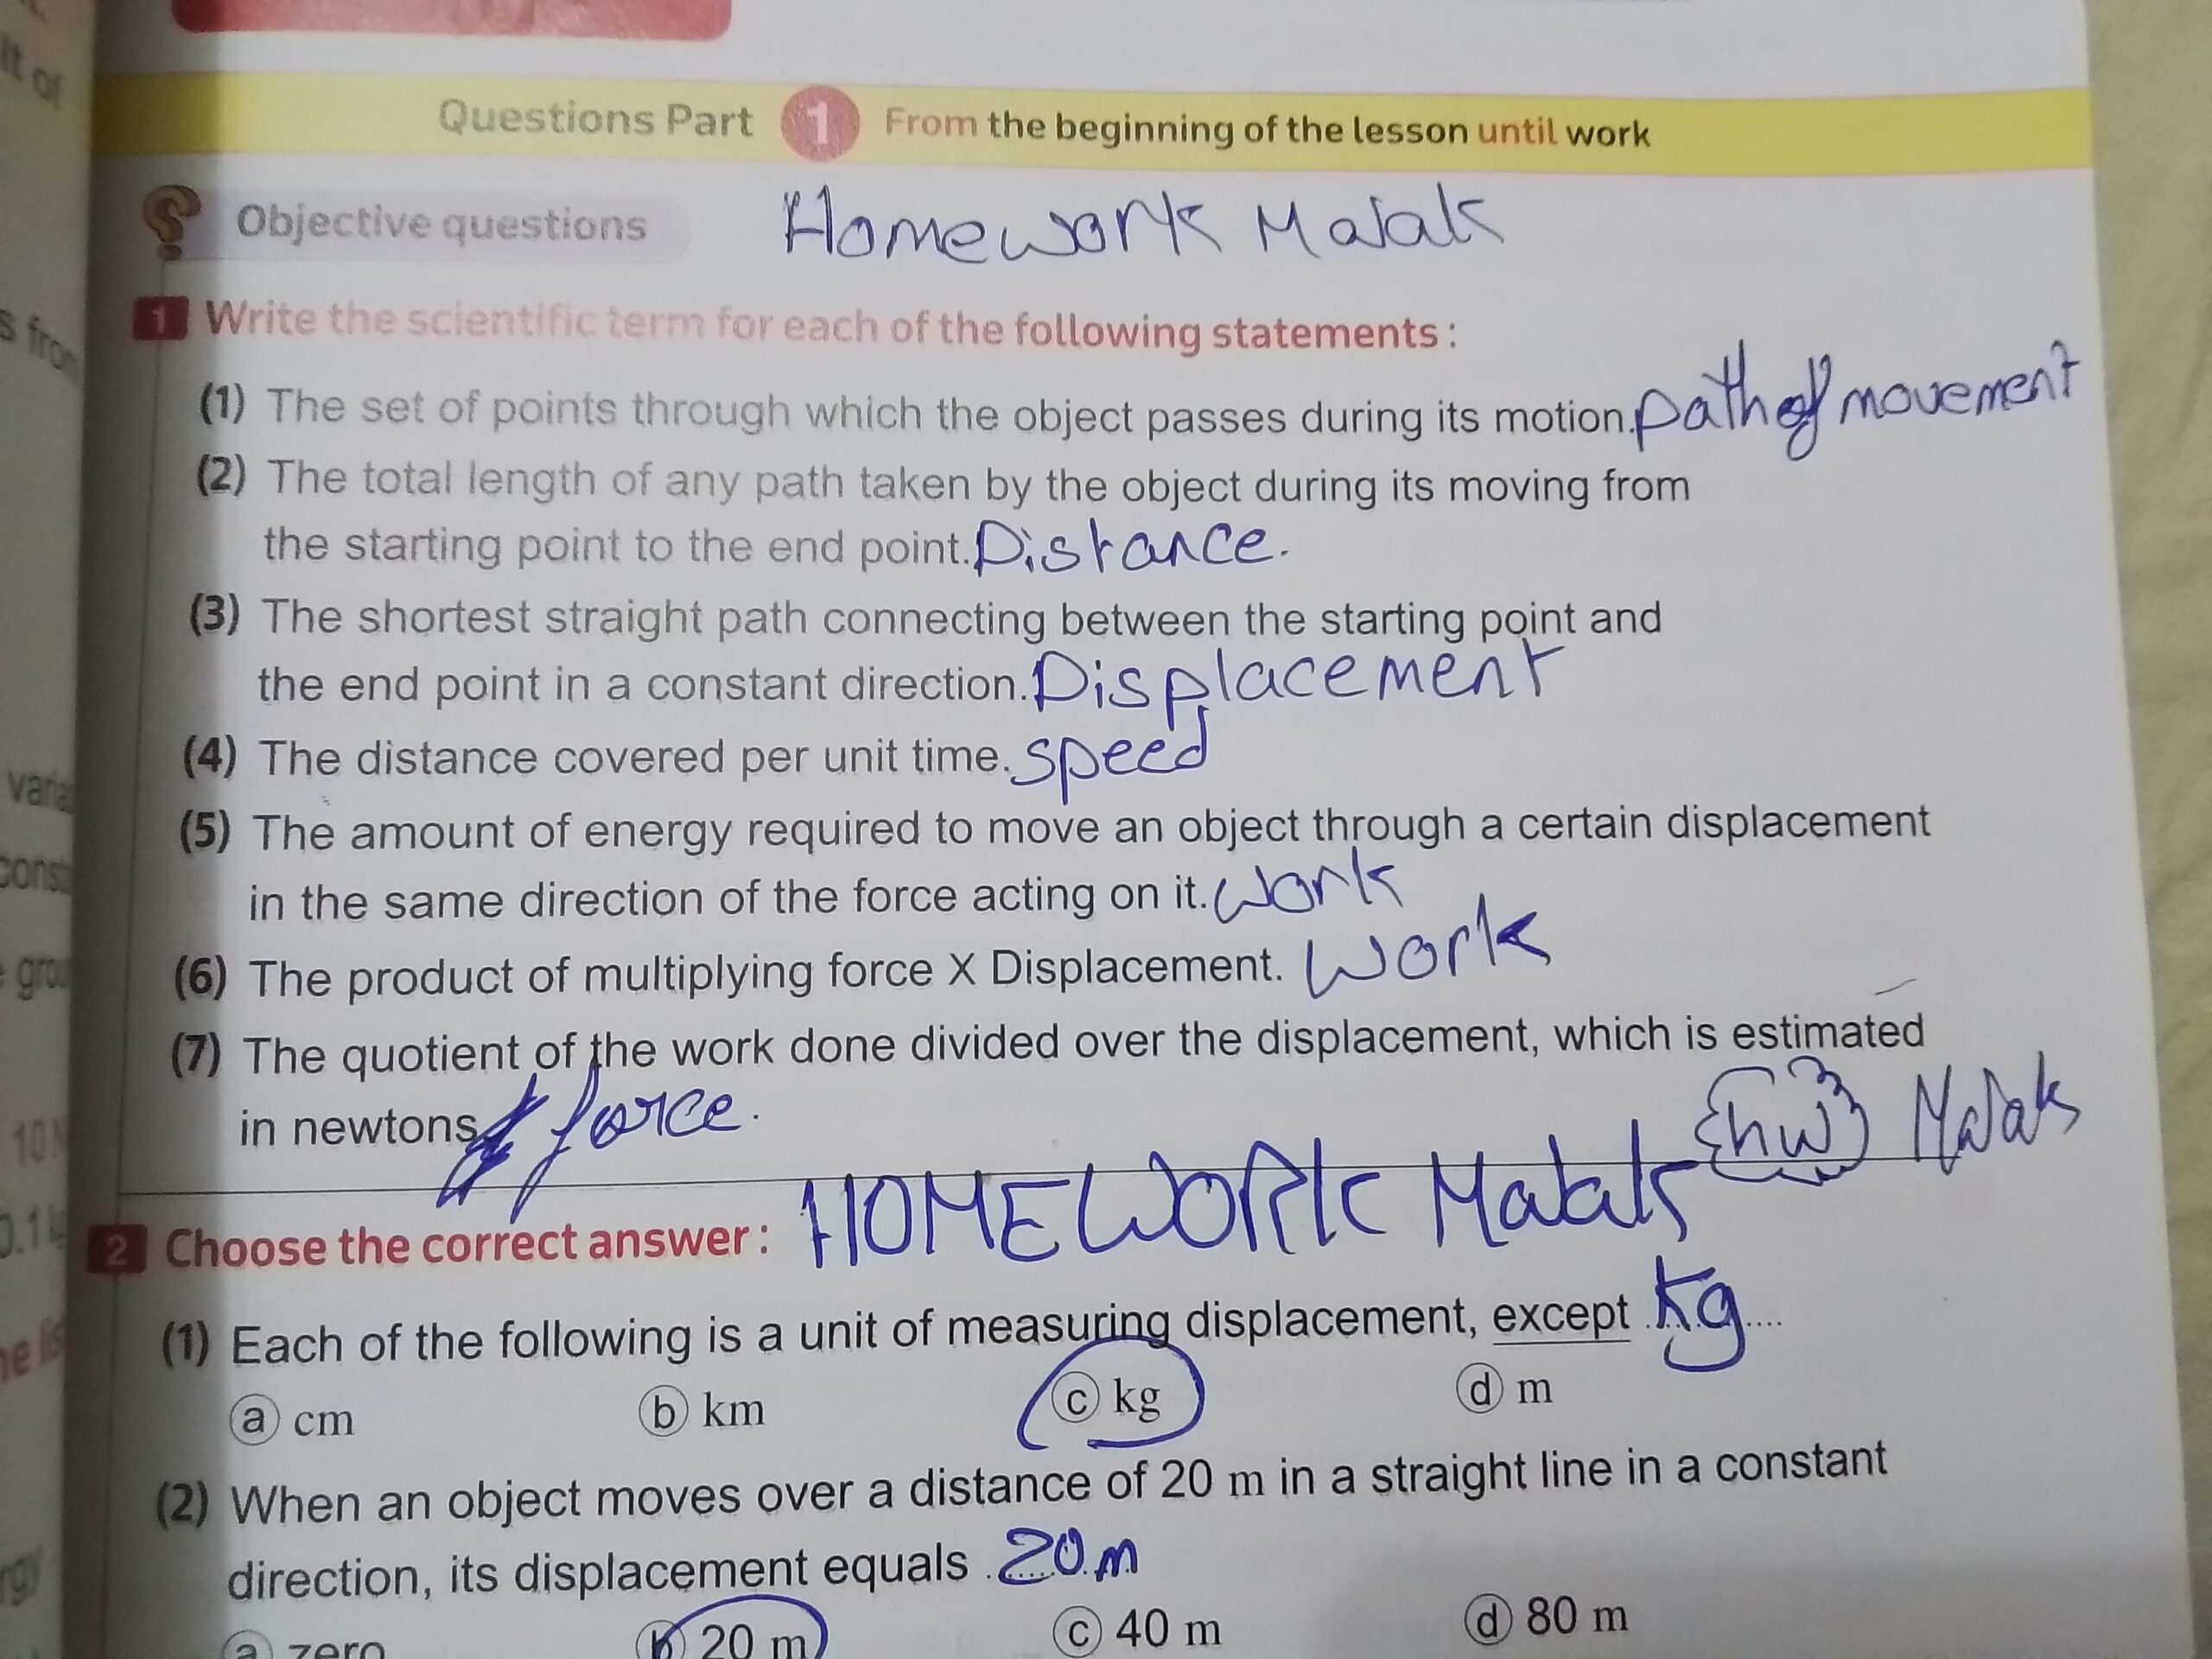 lt of
s from
varia
const
grou
10 N
0.1 k
he lis
rgy
Questions Part 1 From the beginning of the lesson until work
? Objective questions Homework Malak
1 Write the scientific term for each of the following statements :
(1) The set of points through which the object passes during its motion. path of movement
(2) The total length of any path taken by the object during its moving from
the starting point to the end point. Distance.
(3) The shortest straight path connecting between the starting point and
the end point in a constant direction. Displacement
(4) The distance covered per unit time. speed
(5) The amount of energy required to move an object through a certain displacement
in the same direction of the force acting on it. work
(6) The product of multiplying force X Displacement. Work
(7) The quotient of the work done divided over the displacement, which is estimated
in newtons force.
hw Malak
2 Choose the correct answer : HOMEWORK Malak
(1) Each of the following is a unit of measuring displacement, except kg ....
a cm b km c kg d m
(2) When an object moves over a distance of 20 m in a straight line in a constant
direction, its displacement equals 20 m
a zero b 20 m c 40 m d 80 m